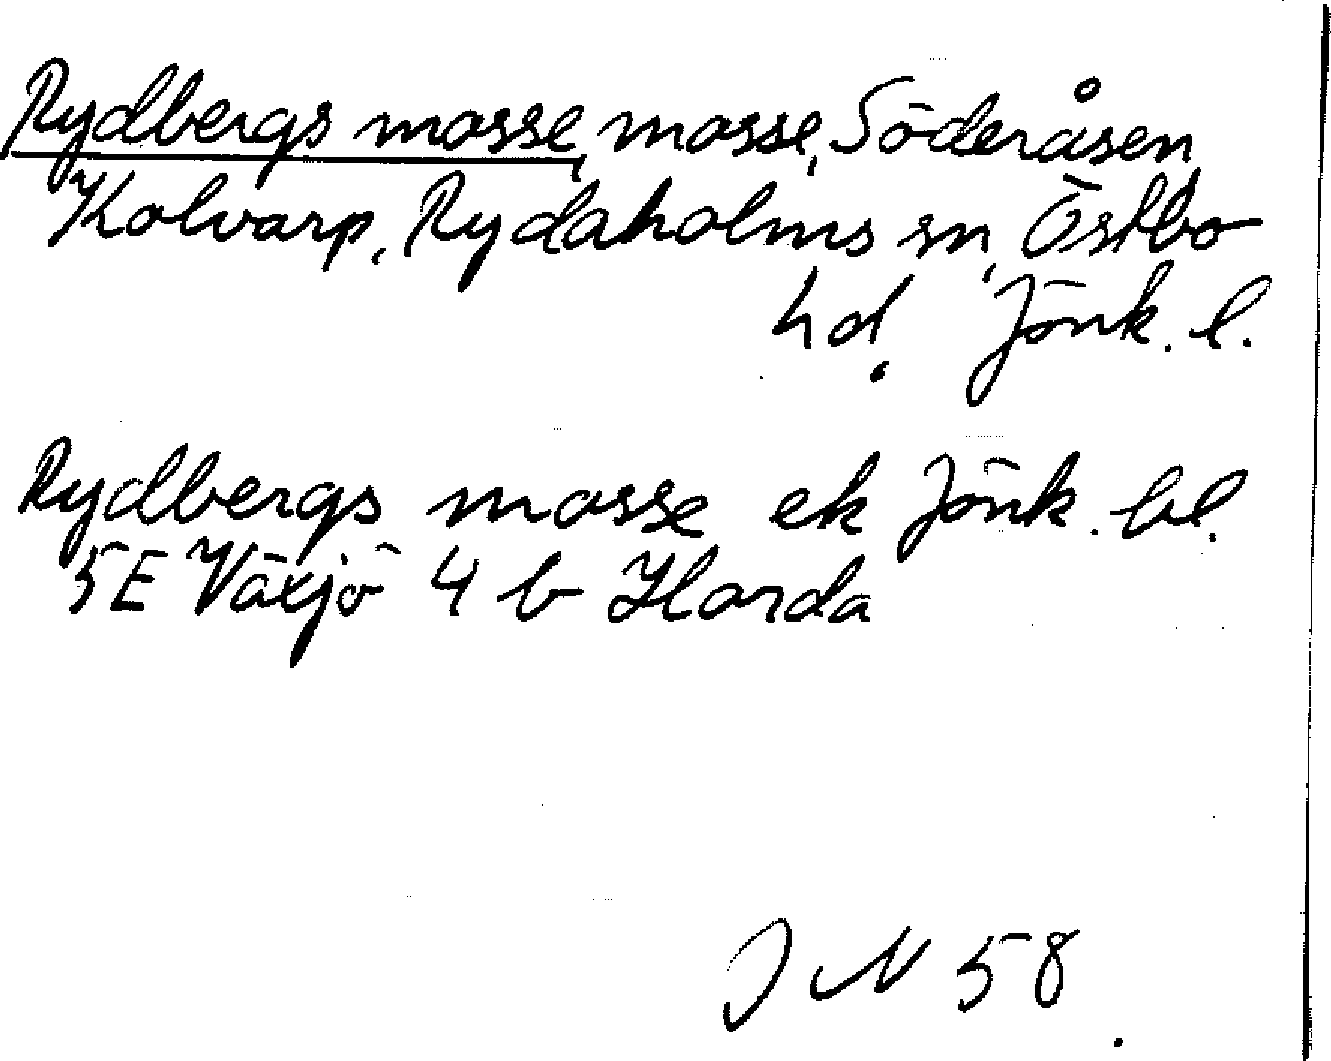 Rydbergs mosse, mosse, Söderåsen,
Kolvarp, Rydaholms sn, Östbo
hd, Jönk. l.
Rydbergs mosse ek Jönk. bl.
5E Växjö 4 b Horda
J N 58